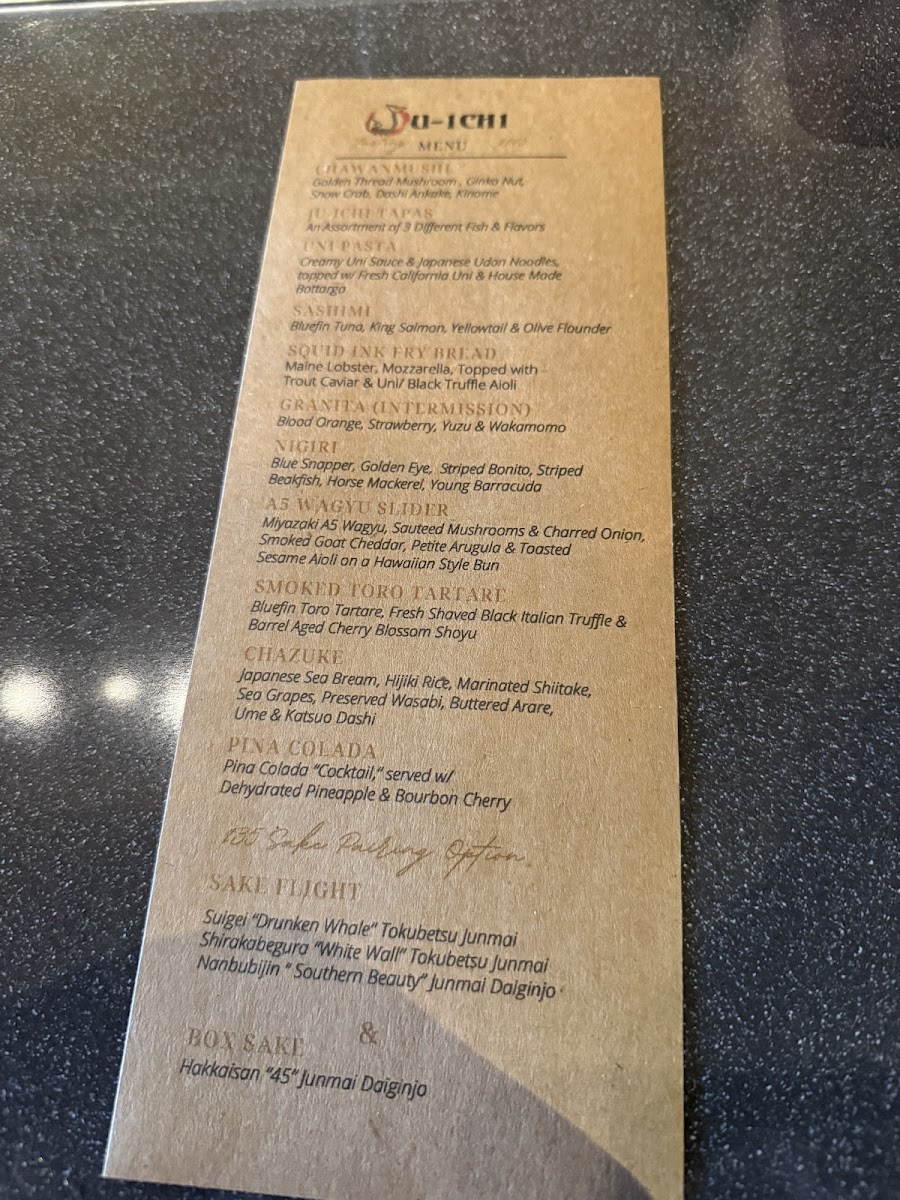 JU-ICHI
MENU
CHAWANMUSHI
Golden Thread Mushroom , Ginko Nut,
Snow Crab, Dashi Ankake, Kinome
JU-ICHI TAPAS
An Assortment of 3 Different Fish & Flavors
UNI PASTA
Creamy Uni Sauce & Japanese Udon Noodles,
topped w/ Fresh California Uni & House Made
Bottarga
SASHIMI
Bluefin Tuna, King Salmon, Yellowtail & Olive Flounder
SQUID INK FRY BREAD
Maine Lobster, Mozzarella, Topped with
Trout Caviar & Uni/ Black Truffle Aioli
GRANITA (INTERMISSION)
Blood Orange, Strawberry, Yuzu & Wakamomo
NIGIRI
Blue Snapper, Golden Eye, Striped Bonito, Striped
Beakfish, Horse Mackerel, Young Barracuda
A5 WAGYU SLIDER
Miyazaki A5 Wagyu, Sauteed Mushrooms & Charred Onion,
Smoked Goat Cheddar, Petite Arugula & Toasted
Sesame Aioli on a Hawaiian Style Bun
SMOKED TORO TARTARE
Bluefin Toro Tartare, Fresh Shaved Black Italian Truffle &
Barrel Aged Cherry Blossom Shoyu
CHAZUKE
Japanese Sea Bream, Hijiki Rice, Marinated Shiitake,
Sea Grapes, Preserved Wasabi, Buttered Arare,
Ume & Katsuo Dashi
PINA COLADA
Pina Colada "Cocktail," served w/
Dehydrated Pineapple & Bourbon Cherry
Sake Pairing Option
SAKE FLIGHT
Suigei "Drunken Whale" Tokubetsu Junmai
Shirakabegura "White Wall" Tokubetsu Junmai
Nanbubijin " Southern Beauty" Junmai Daiginjo
&
BOX SAKE
Hakkaisan "45" Junmai Daiginjo